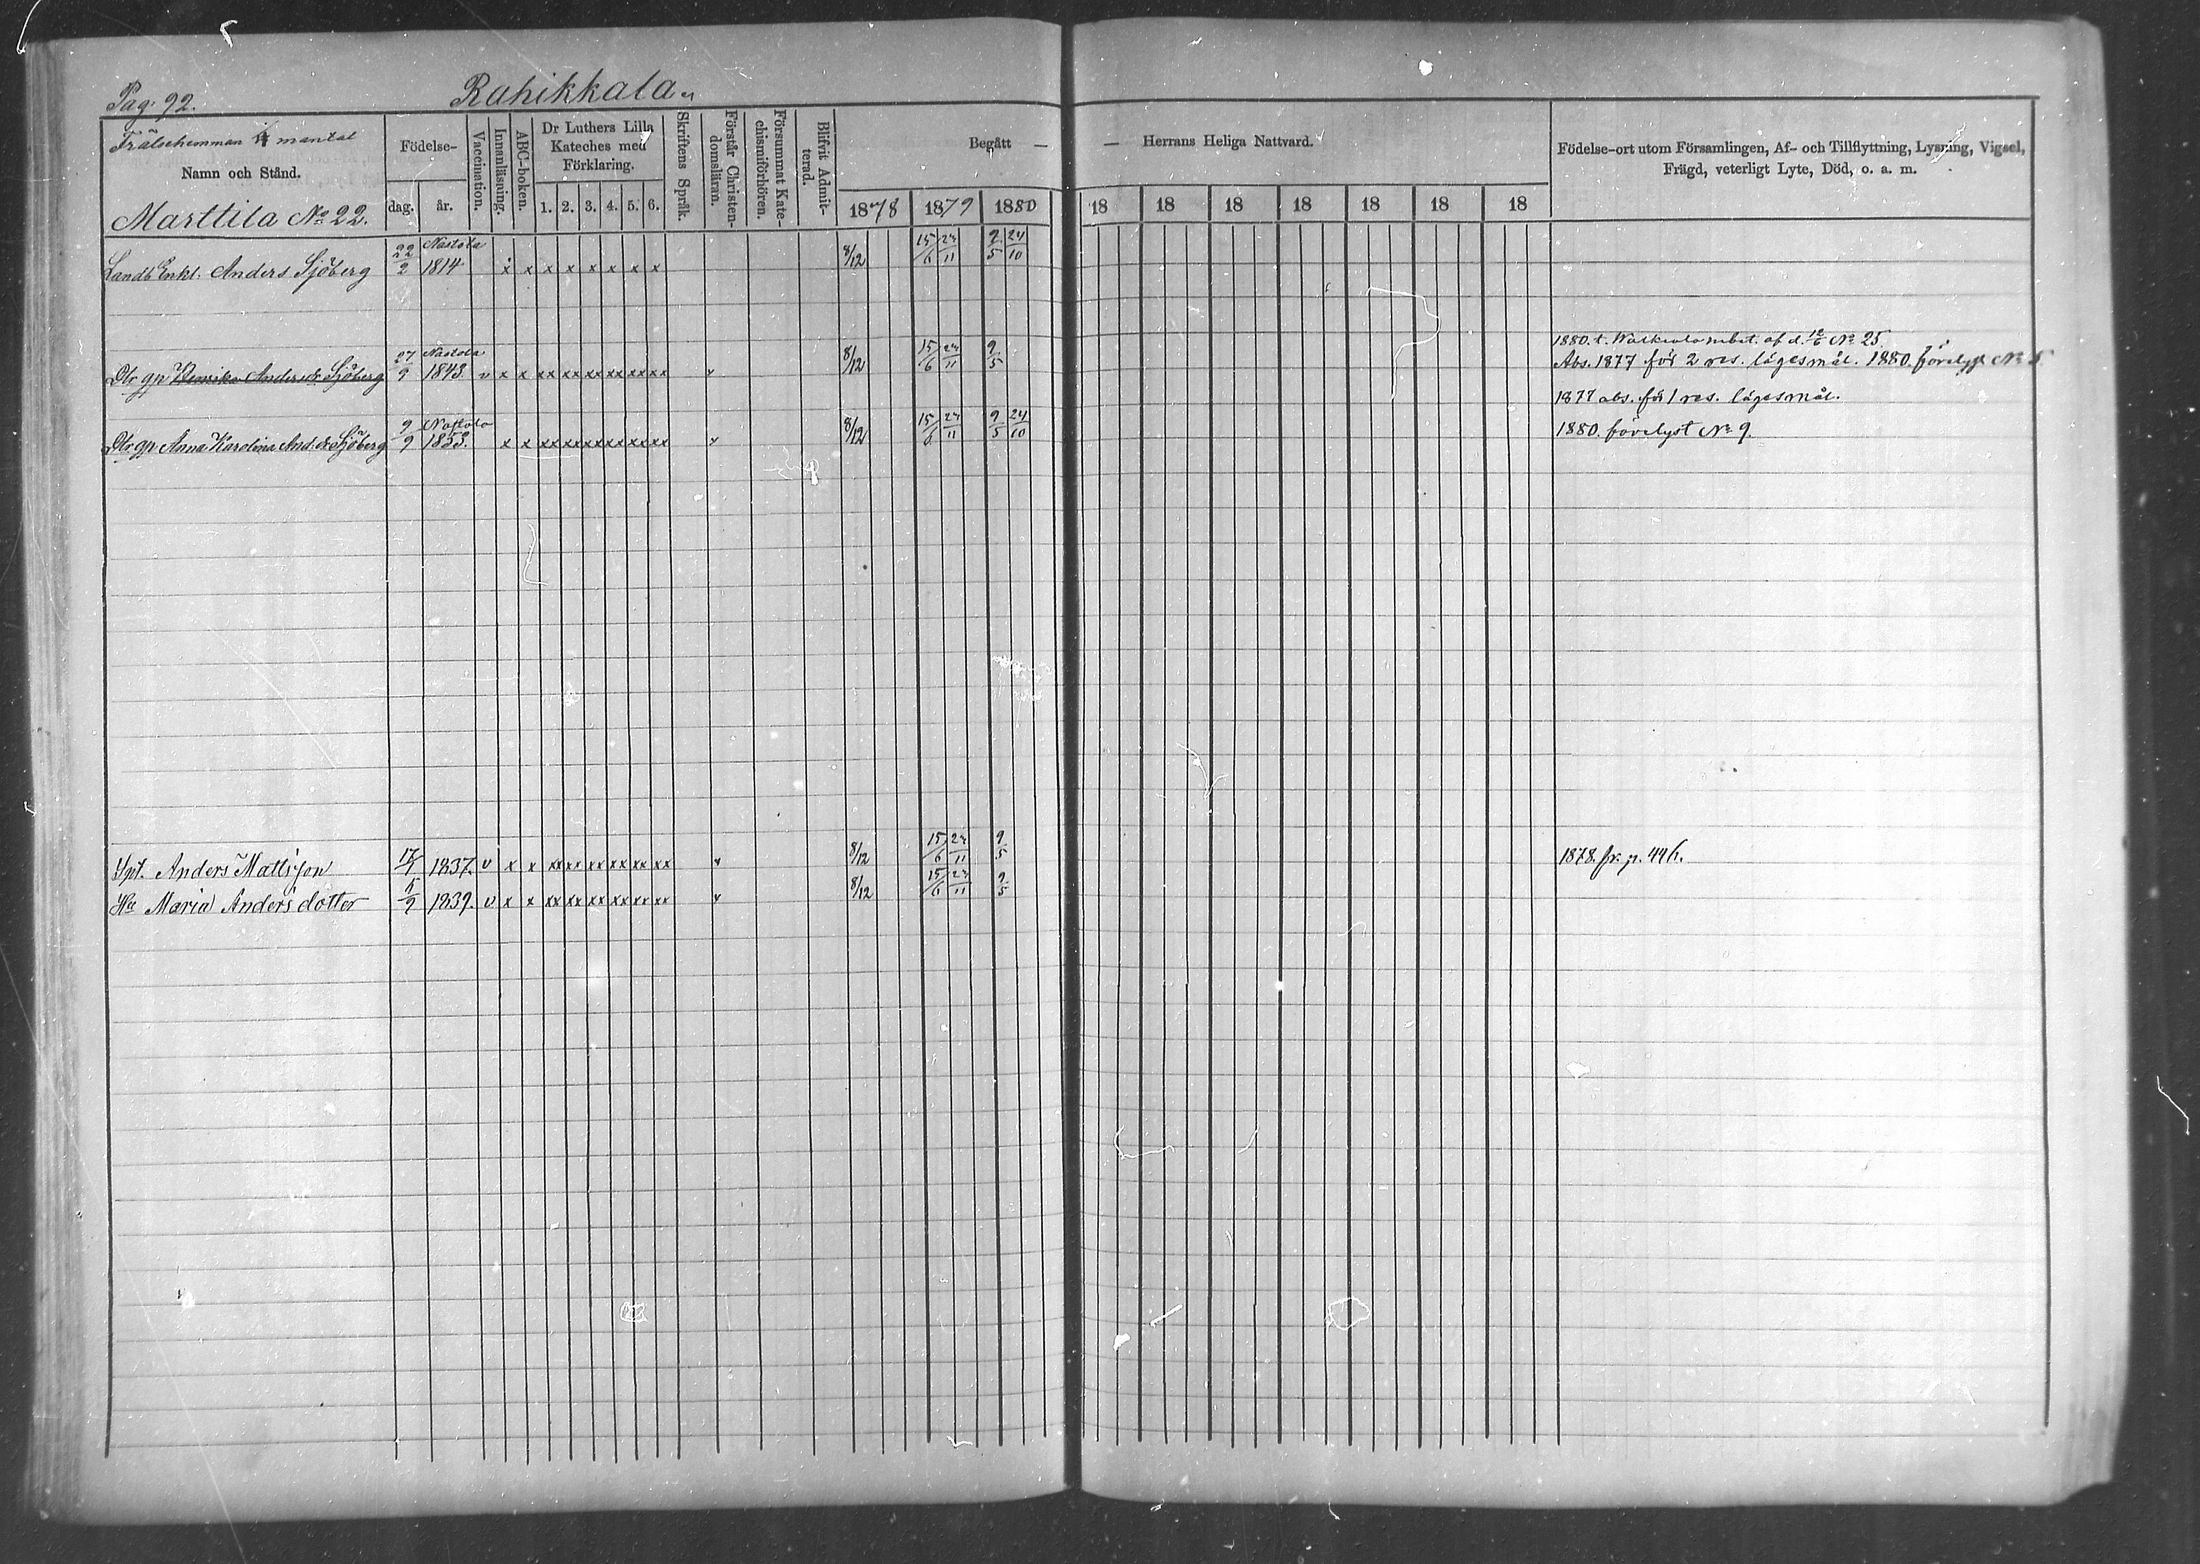 Pag. 92.
Rahikkala.
Frälsehemman mantal
Namn och Stånd.
Marttila No 22.
Födelse-
dag. år.
Vaccination.
Innanläsning.
ABC-boken.
Dr Luthers Lilla
Kateches med
Förklaring.
1. 2. 3. 4. 5. 6.
Skriftens Språk.
Förstår Christen-
domsläran.
Försummat Kate-
chismiförhören.
Blifvit Admit-
terad.
Begått — — Herrans Heliga Nattvard.
1878 1879 1880 18 18 18 18 18 18 18
Födelse-ort utom Församlingen, Af- och Tillflyttning, Lysning, Vigsel,
Frägd, veterligt Lyte, Död, o. a. m.
Landb. Enkl. Anders Sjöberg 22/2 Nastola 1814 x x x x x x x x 8/12 15/6 23/11 9/5 24/10
1880. t. af d. 12/6 No 25.
Dtr gp Henrika Andersdr Sjöberg 27/9 Nastola 1843. v x x xx xx xx xx xx xx v 8/12 15/6 23/11 9/5 Abs. 1877 för 2 res. lägesmål. 1880. förelyst No 5
1877 abs. för 1 res. lägesmål.
Dtr gp Anna Karolina And. dr Sjöberg 9/9 Nastola 1853. x x xx xx xx xx xx xx v 8/12 15/6 23/11 9/5 24/10 1880. förelyst No 9.
Spt. Anders Mattsson 1837. v x x xx xx xx xx xx xx v 8/12 15/6 23/11 9/5 1878. fr. p. 446.
Hu Maria Andersdotter 1839. v x x xx xx xx xx xx xx v 8/12 15/6 23/11 9/5